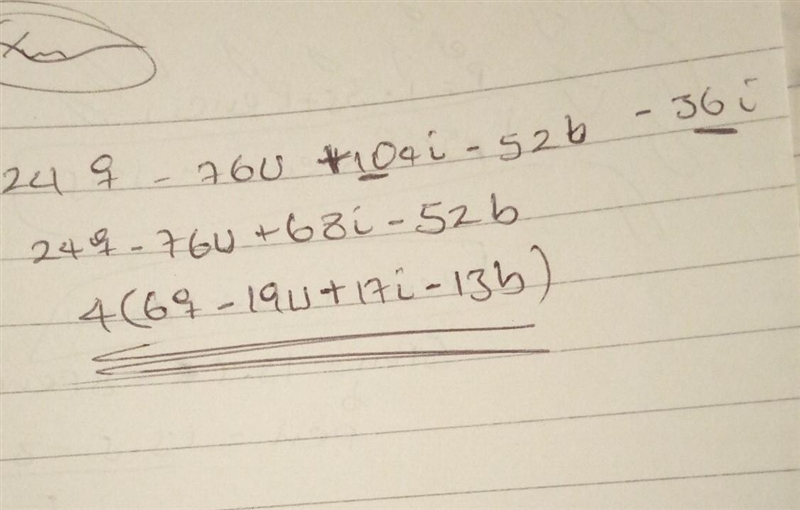 24q - 76u + 104i - 52b - 36i
24q - 76u + 68i - 52b
4(6q - 19u + 17i - 13b)